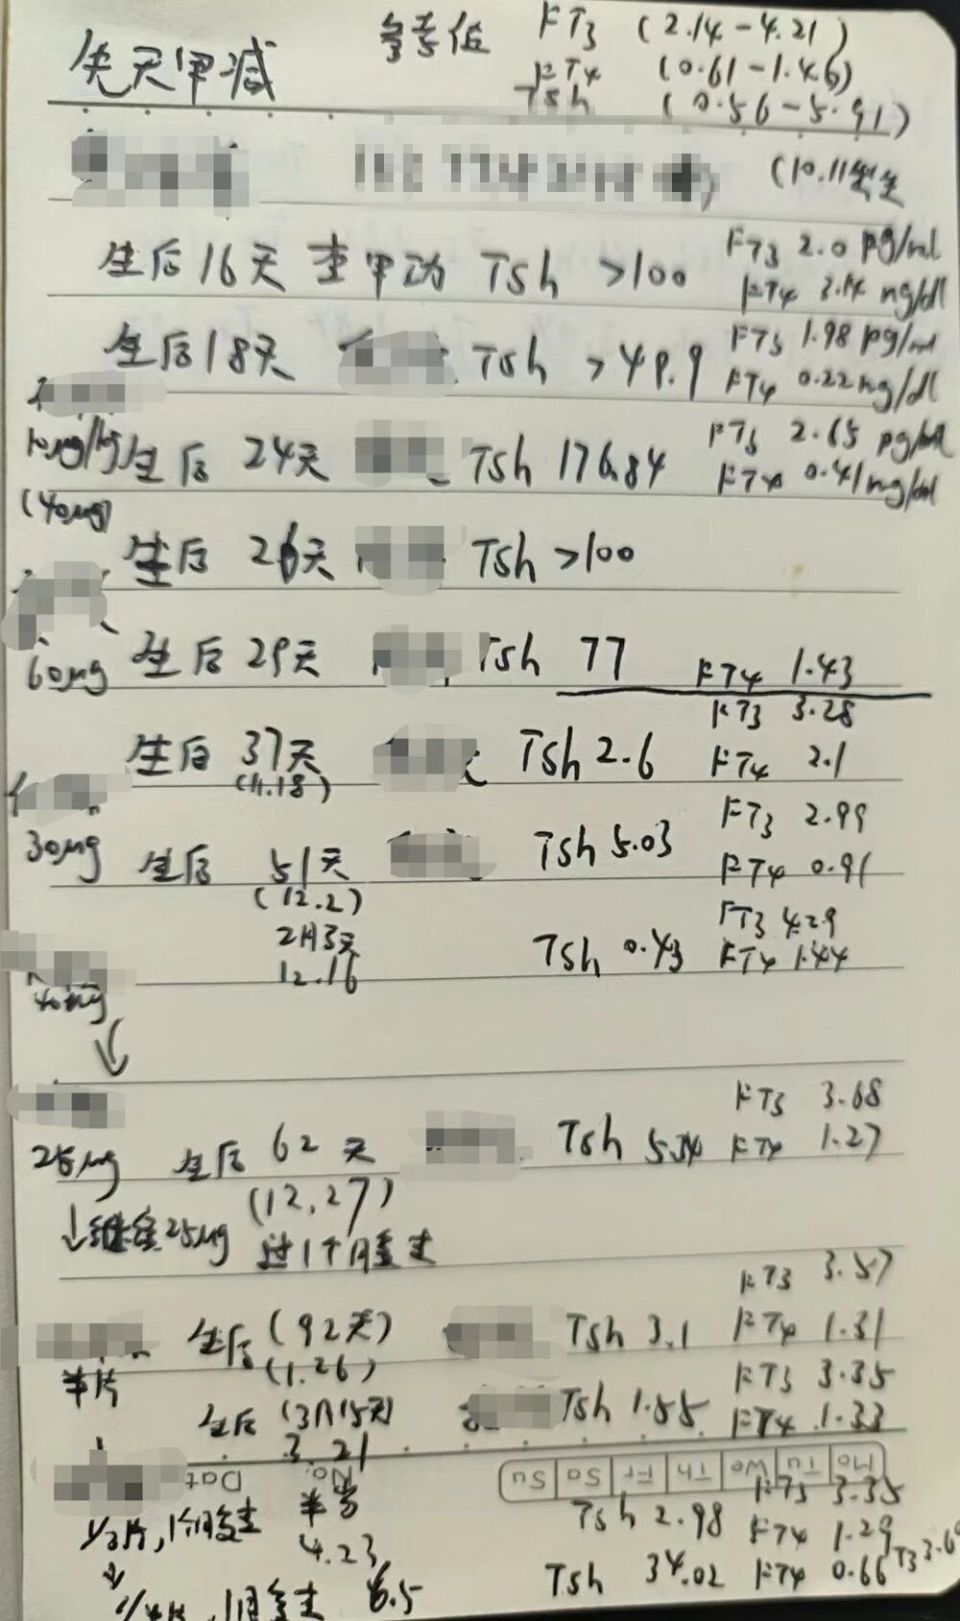 先天甲减 参考值 FT3 (2.14-4.21)
FT4 (0.61-1.46)
Tsh (0.56-5.91)
(10.11出生
生后16天 查甲功 Tsh >100 FT3 2.0 pg/ml
FT4 3.14 ng/dl
生后18天 Tsh >48.9 FT3 1.98 pg/ml
FT4 0.22 ng/dl
10μg/kg 生后 24天 Tsh 176.84 FT3 2.65 pg/ml
(40μg) FT4 0.41 ng/dl
生后 26天 Tsh >100
60μg 生后 29天 Tsh 77 FT4 1.43
FT3 3.28
生后 37天 Tsh 2.6 FT4 2.1
(11.18)
FT3 2.99
30μg 生后 51天 Tsh 5.03 FT4 0.91
(12.2)
2月3天 FT3 4.29
12.16 Tsh 0.43 FT4 1.44
40μg
↓
FT3 3.68
25μg 生后 62天 Tsh 5.34 FT4 1.27
(12.27)
↓继续25μg 过1个月复查
FT3 3.57
生后 (92天) Tsh 3.1 FT4 1.31
半片 (1.26)
FT3 3.35
生后 (3月15天) Tsh 1.55 FT4 1.33
3.21
Dat No. Su Sa Fr Th We Tu Mo
FT3 3.35
Tsh 2.98 FT4 1.29
1/3片,1个月复查 4.23
Tsh 34.02 FT4 0.66 T3 3.6
↓
1/4片,1个月复查 6.5